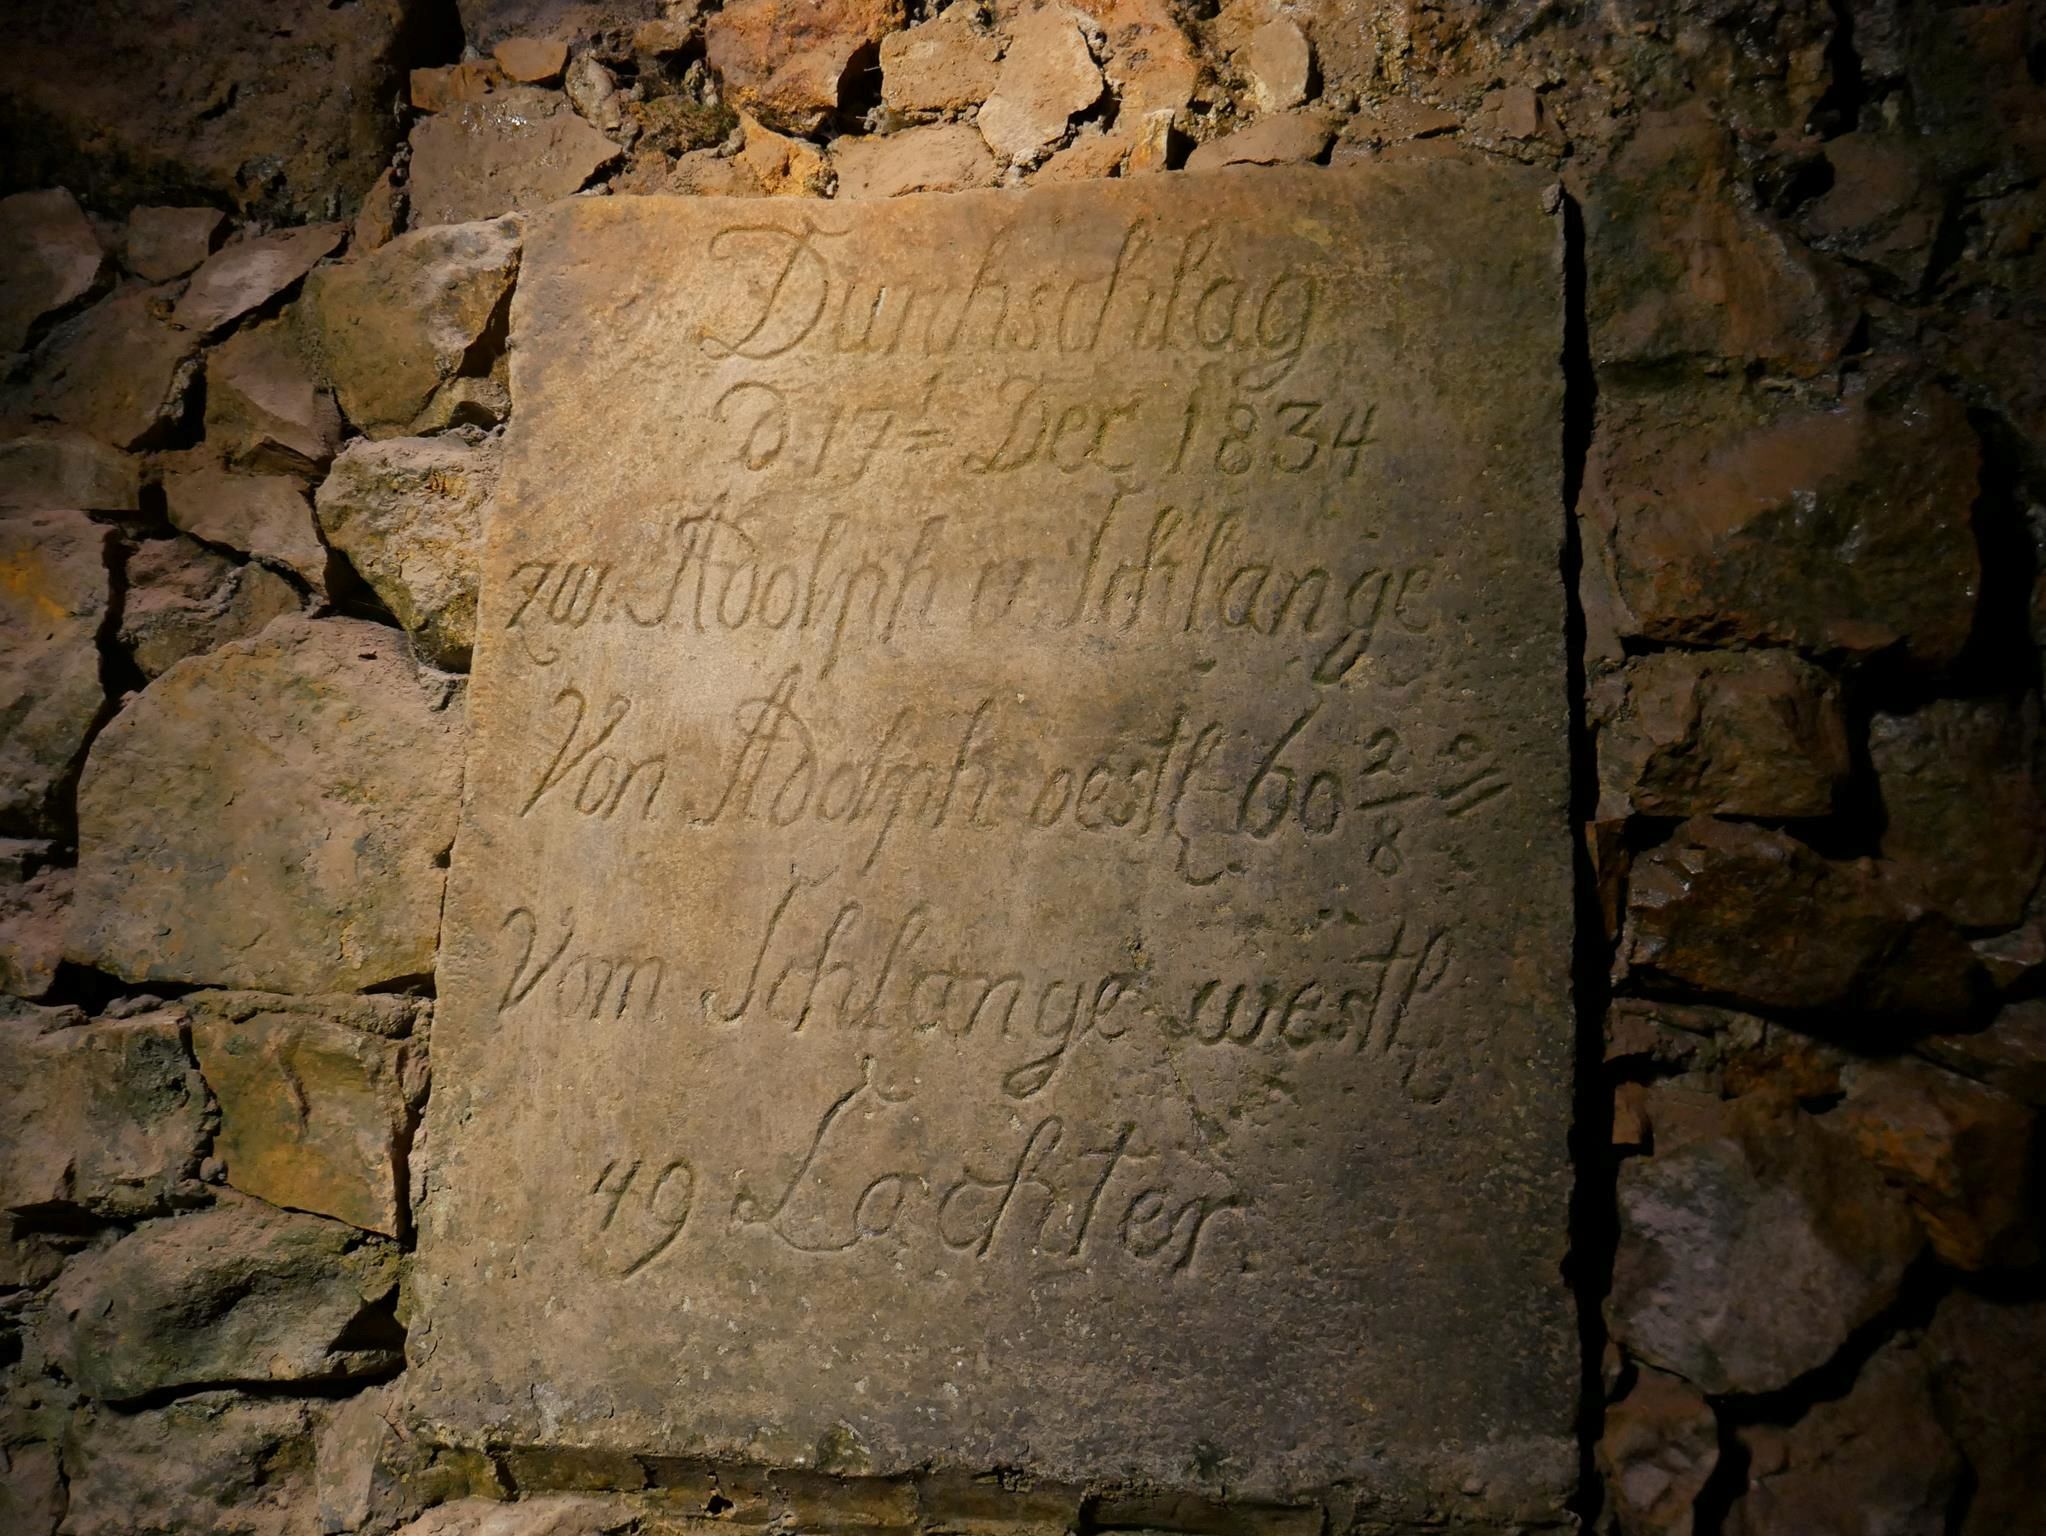 Durchschlag
d 17t Dec 1834
zw. Adolph u Schlange
Von Adolph oestl 60 2/8
Vom Schlange westl
49 Lachter